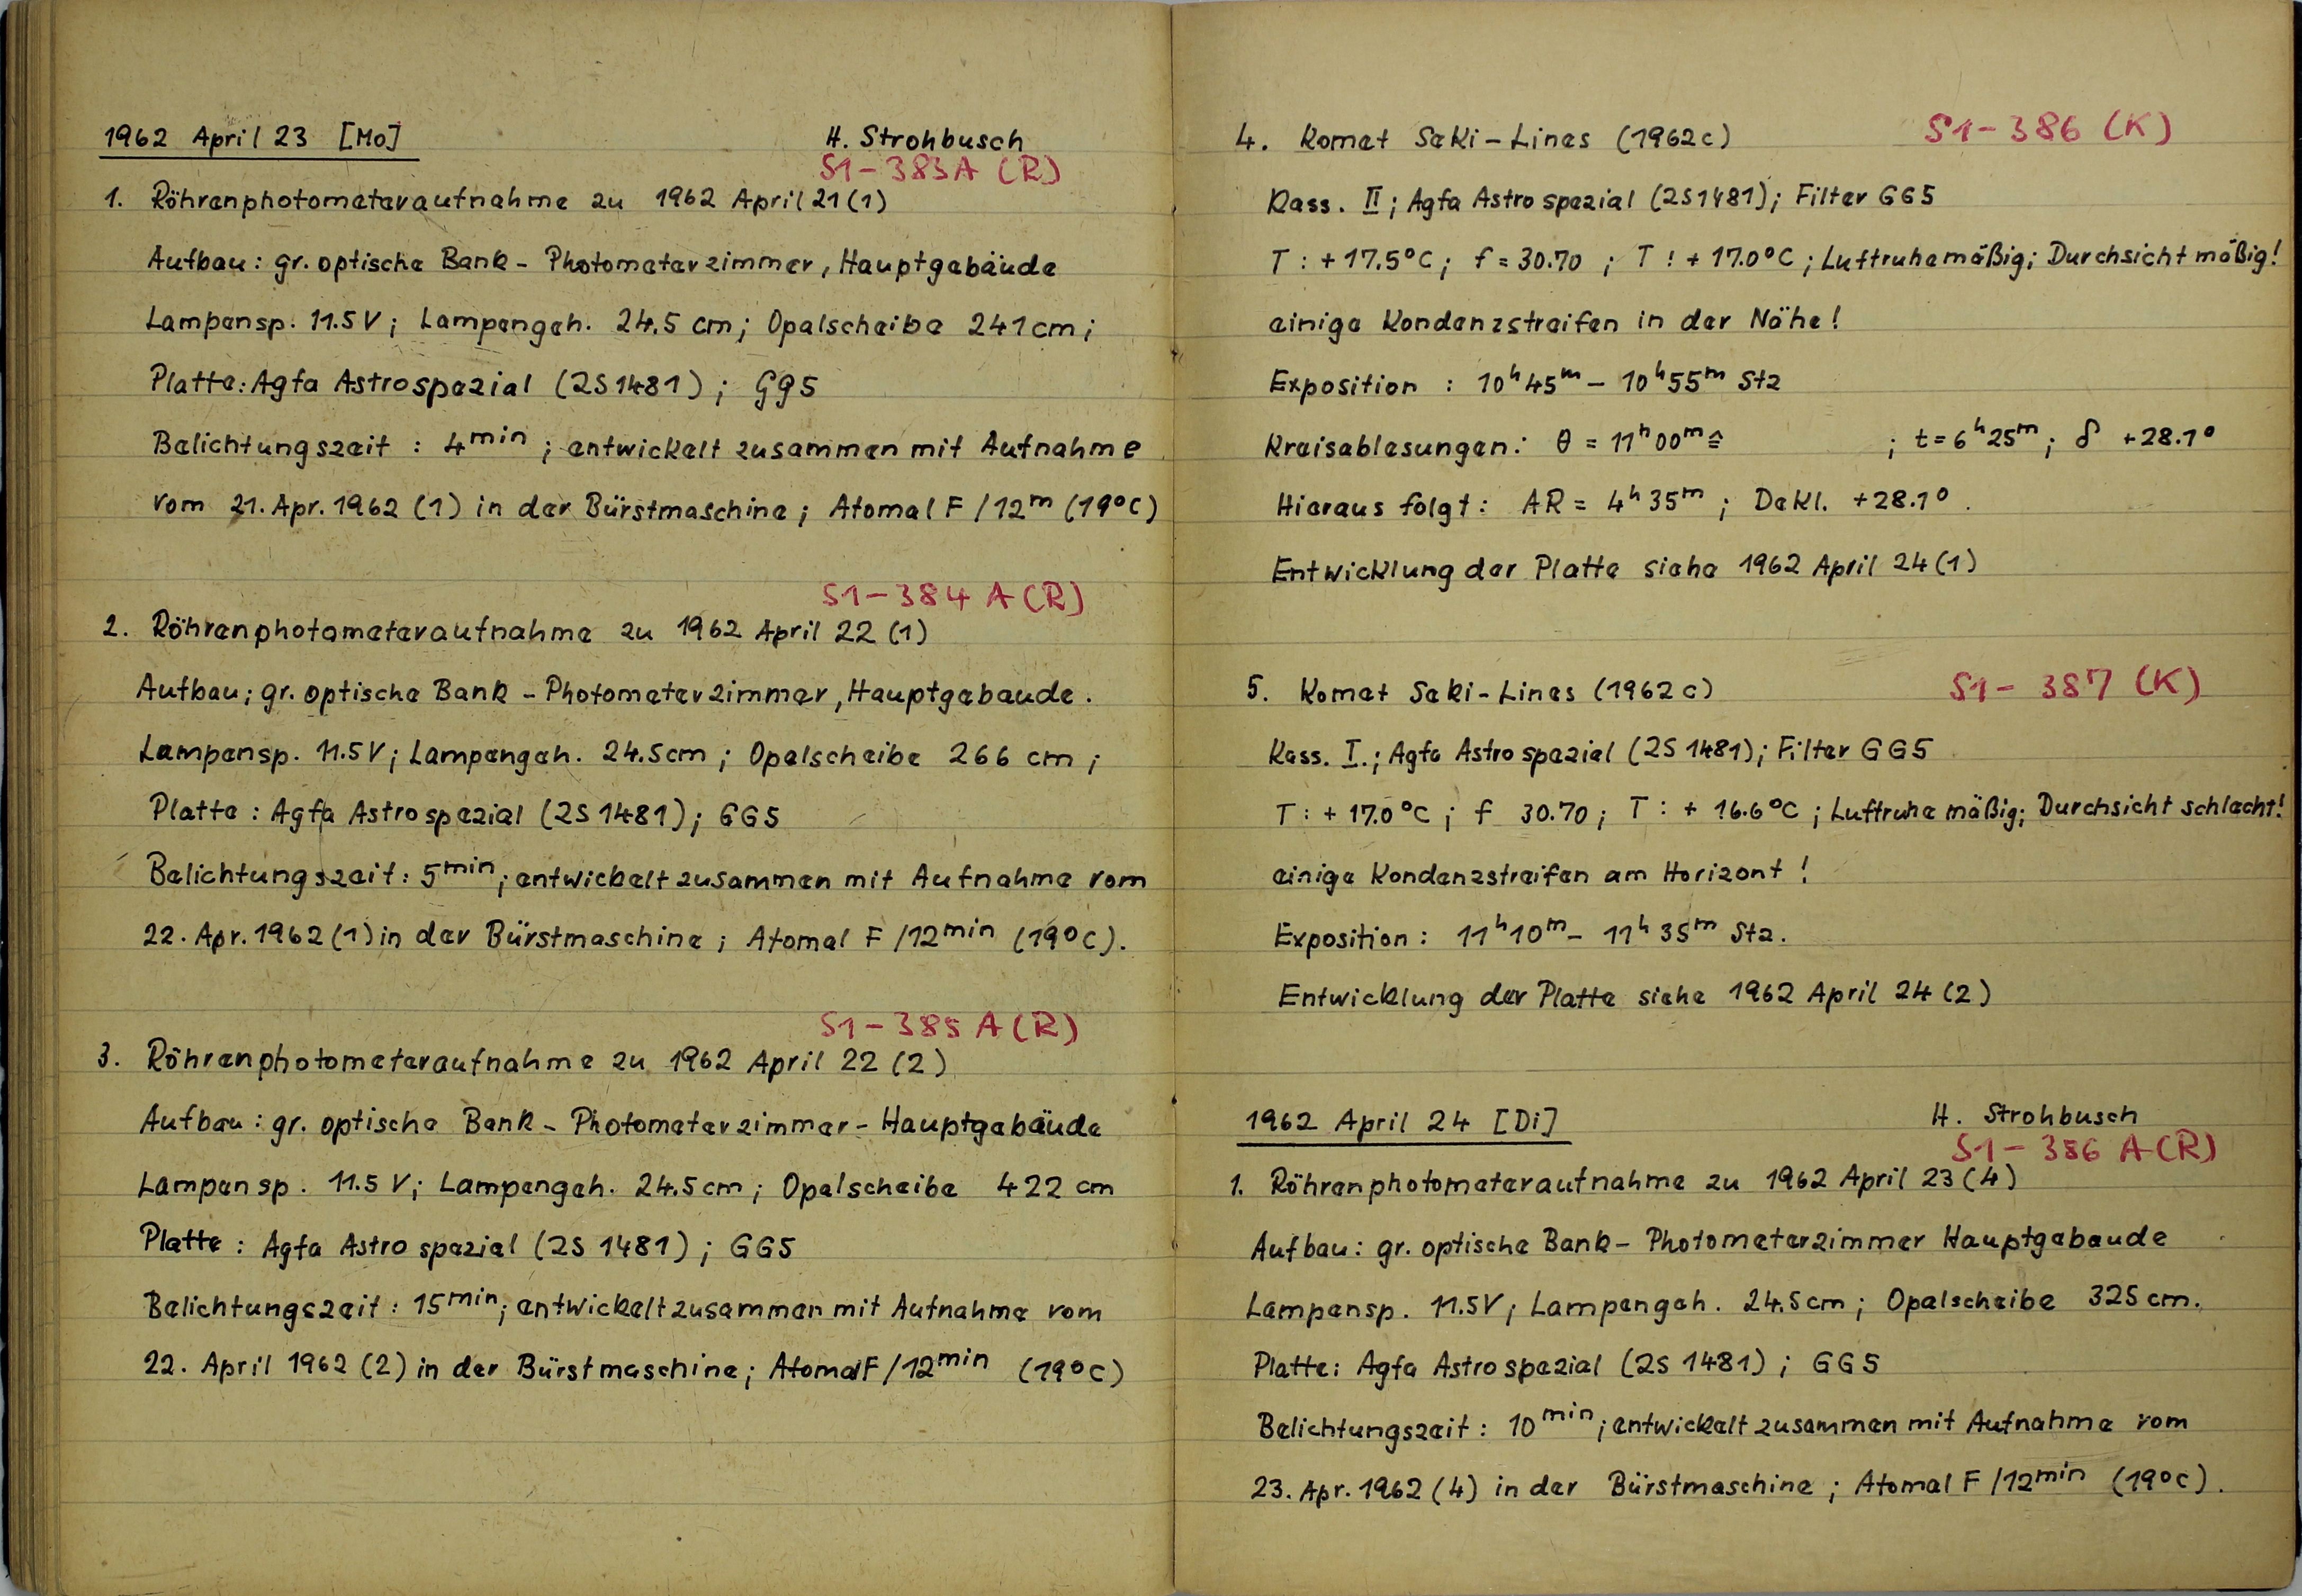 1962 April 23 [Mo] H. Strohbusch
S1-383A (R)
1. Röhrenphotometeraufnahme zu 1962 April 21 (1)
Aufbau: gr. optische Bank - Photometerzimmer, Hauptgebäude
Lampensp. 11.5 V; Lampengeh. 24.5 cm; Opalscheibe 241 cm;
Platte: Agfa Astrospezial (2S1481); GG5
Belichtungszeit : 4min; entwickelt zusammen mit Aufnahme
vom 21. Apr. 1962 (1) in der Bürstmaschine; Atomal F /12m (19°C)
S1-384 A (R)
2. Röhrenphotometeraufnahme zu 1962 April 22 (1)
Aufbau; gr. optische Bank - Photometerzimmer, Hauptgebaude.
Lampensp. 11.5V; Lampengeh. 24.5cm; Opalscheibe 266 cm;
Platte: Agfa Astrospezial (2S1481); GG5
Belichtungszeit: 5min; entwickelt zusammen mit Aufnahme vom
22. Apr. 1962 (1) in der Bürstmaschine; Atomal F /12min (19°C).
S1-385 A (R)
3. Röhrenphotometeraufnahme zu 1962 April 22 (2)
Aufbau: gr. optische Bank - Photometerzimmer - Hauptgebäude
Lampensp. 11.5 V; Lampengeh. 24.5cm; Opalscheibe 422 cm
Platte: Agfa Astrospezial (2S 1481); GG5
Belichtungszeit: 15min; entwickelt zusammen mit Aufnahme vom
22. April 1962 (2) in der Bürstmaschine; Atomal F /12min (19°C)
4. Komet Seki-Lines (1962c) S1-386 (K)
Kass. II; Agfa Astrospezial (2S1481); Filter GG5
T: +17.5°C; f = 30.70; T: +17.0°C; Luftruhe mäßig; Durchsicht mäßig!
einige Kondenzstreifen in der Nähe!
Exposition : 10h45m - 10h55m Stz
Kreisablesungen: θ = 11h00m ≙ ; t=6h25m; δ +28.1°
Hieraus folgt: AR = 4h35m; Dekl. +28.1°.
Entwicklung der Platte siehe 1962 April 24 (1)
5. Komet Seki-Lines (1962c) S1-387 (K)
Kass. I.; Agfa Astrospezial (2S1481); Filter GG5
T: +17.0°C; f 30.70; T: +16.6°C; Luftruhe mäßig; Durchsicht schlecht!
einige Kondenzstreifen am Horizont!
Exposition: 11h10m - 11h35m Stz.
Entwicklung der Platte siehe 1962 April 24 (2)
1962 April 24 [Di] H. Strohbusch
S1-386 A (R)
1. Röhrenphotometeraufnahme zu 1962 April 23 (4)
Aufbau: gr. optische Bank - Photometerzimmer Hauptgebaude
Lampensp. 11.5V; Lampengeh. 24.5cm; Opalscheibe 325 cm.
Platte: Agfa Astrospezial (2S 1481); GG5
Belichtungszeit: 10min; entwickelt zusammen mit Aufnahme vom
23. Apr. 1962 (4) in der Bürstmaschine; Atomal F /12min (19°C).